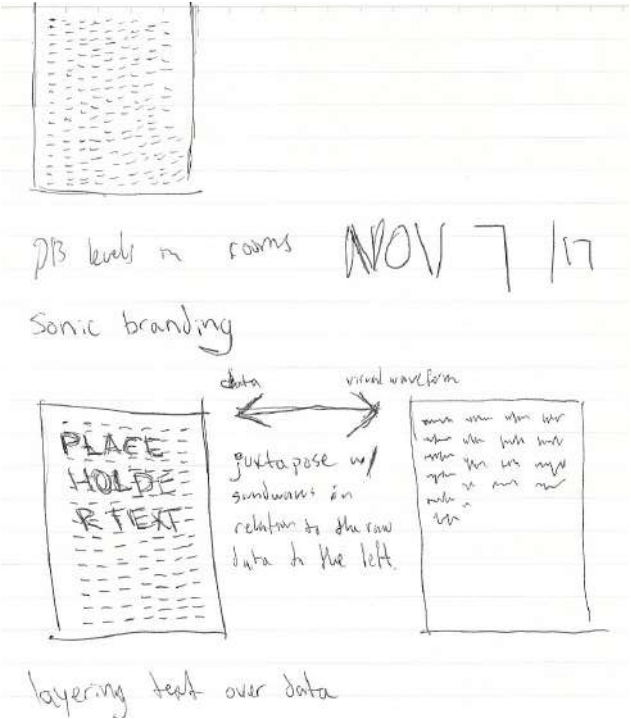 DB levels in rooms NOV 7 /17
Sonic branding
data visual waveform
PLACE
HOLDE
R TEXT
juxtapose w/
soundwaves in
relation to the raw
data to the left.
layering text over data